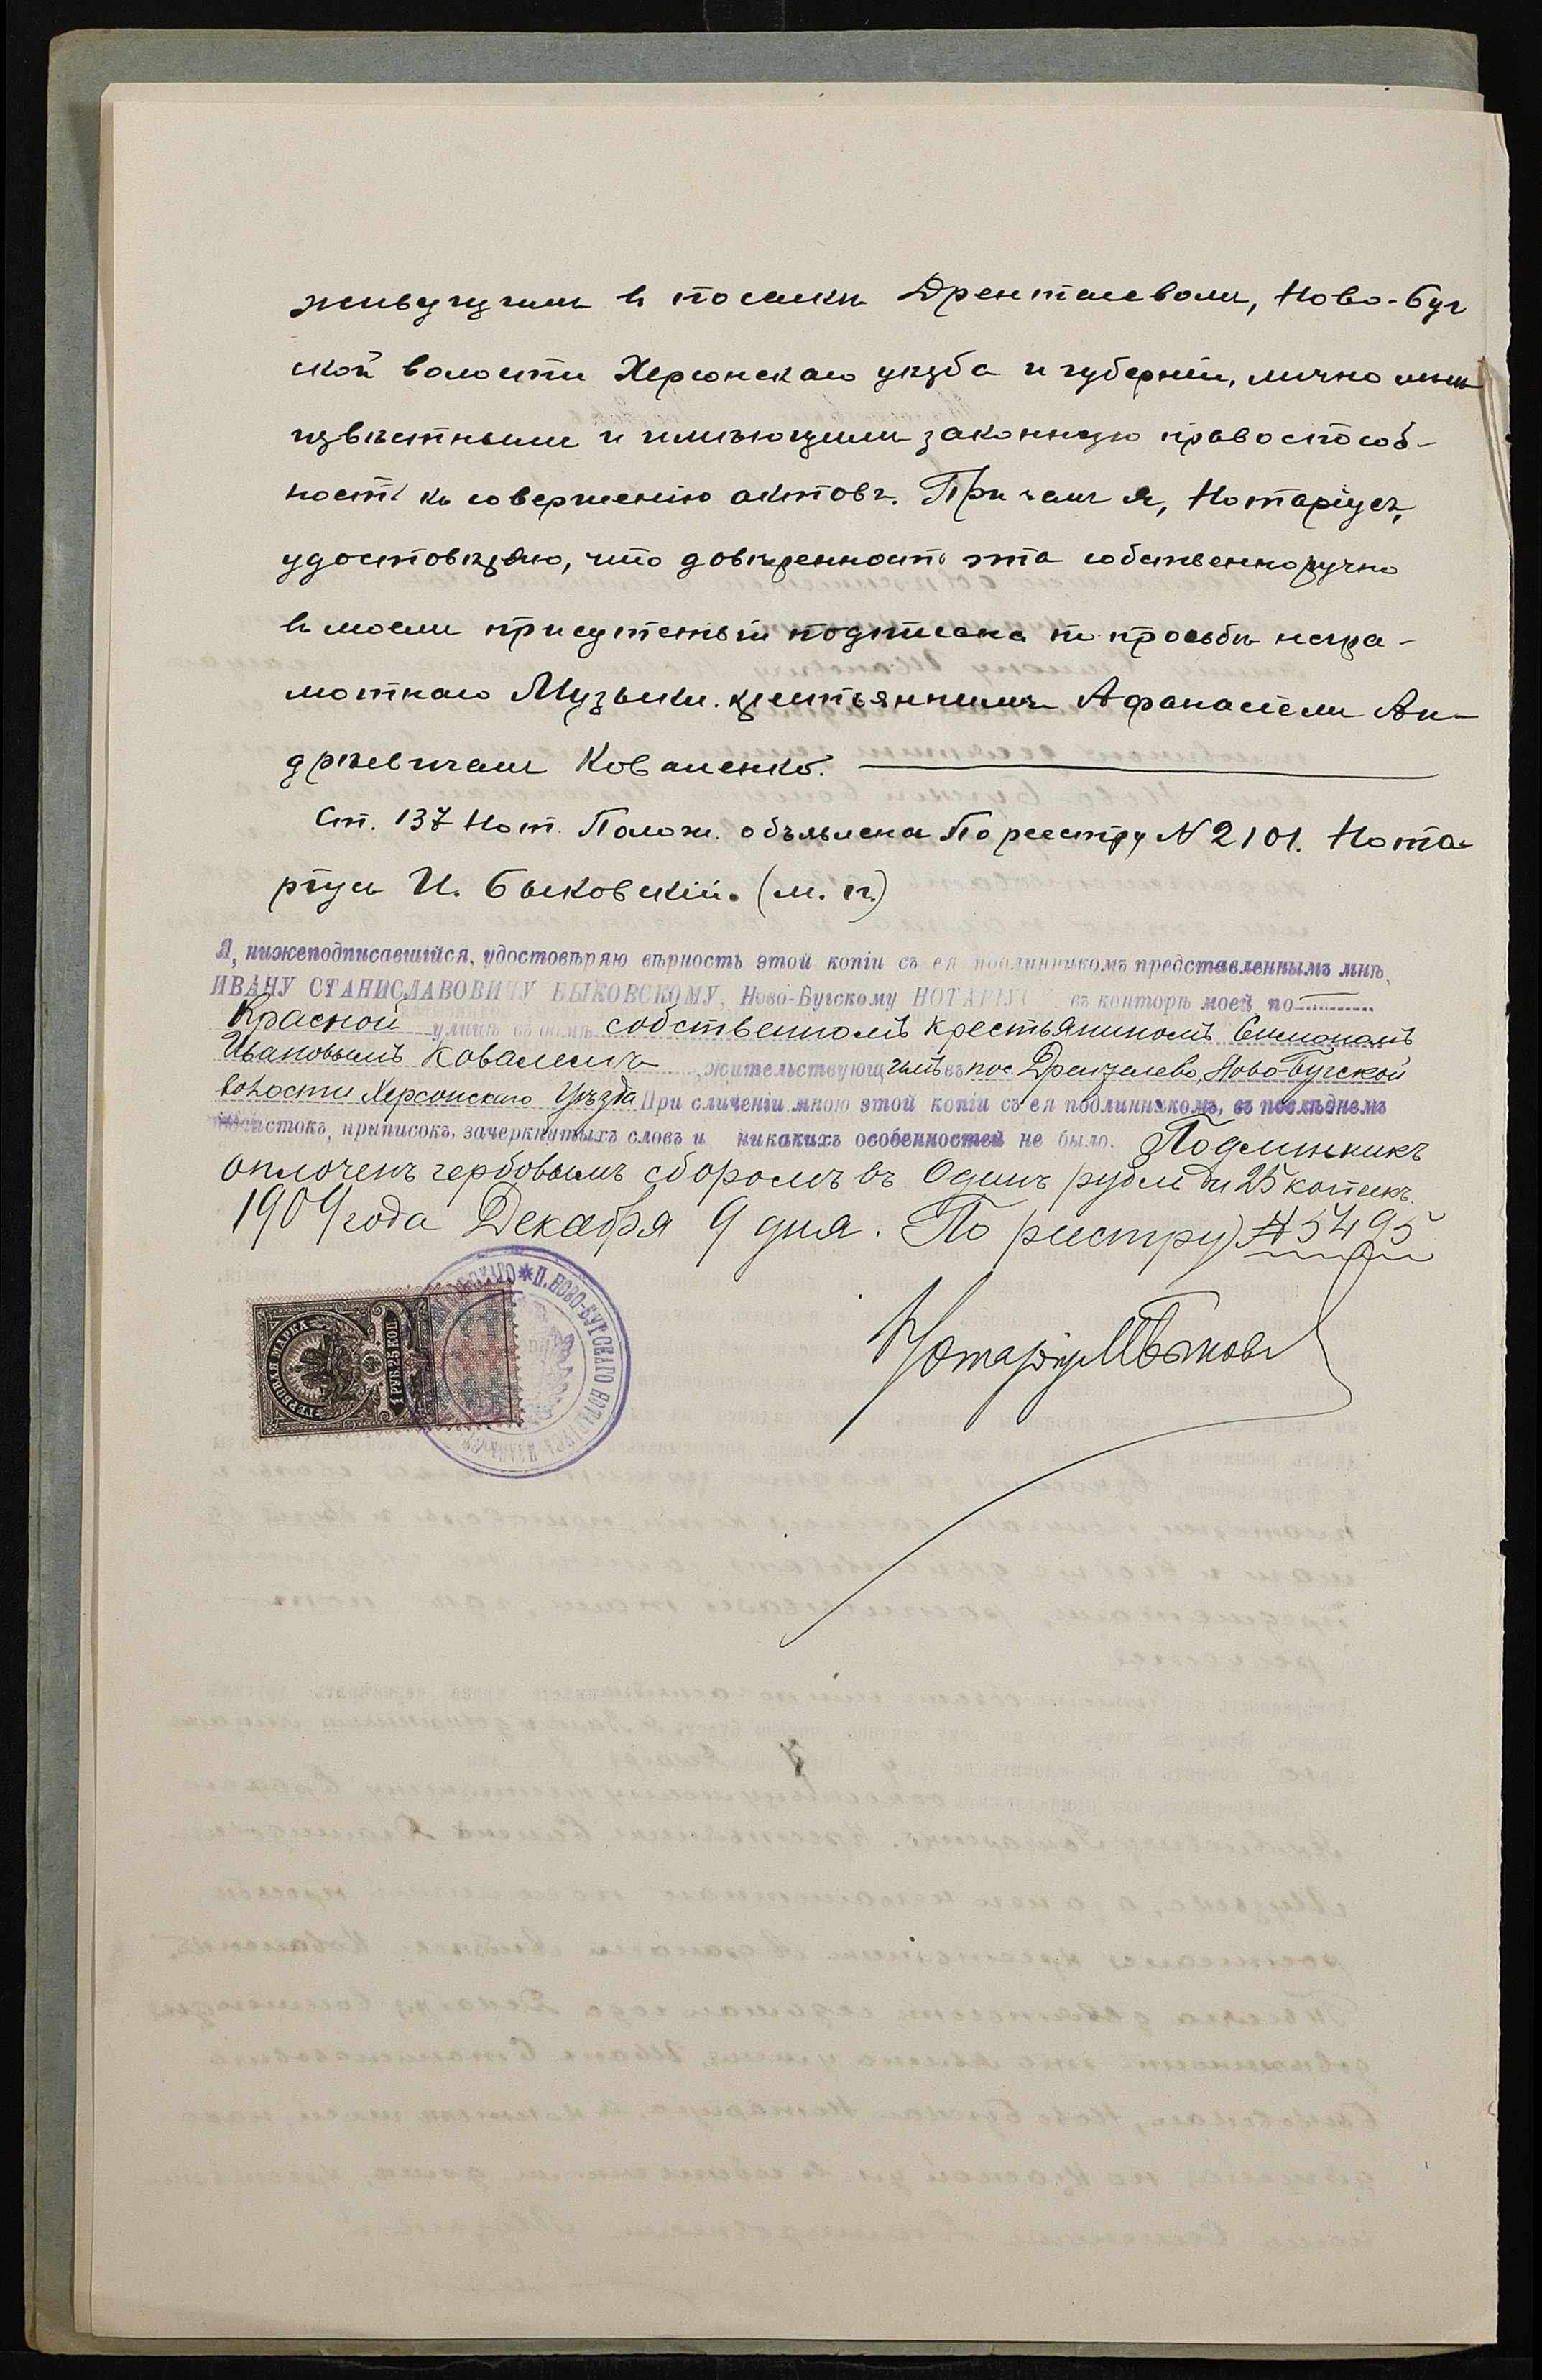 живущимъ въ поселкѣ Дренталевомъ, Ново-Буг
ской волости Херсонскаго уѣзда и губерніи, лично мнѣ
извѣстнымъ и имѣющимъ законную правоспособ-
ность къ совершенію актовъ. При чемъ я, Нотаріусъ,
удостовѣряю, что довѣренность эта собственноручно
въ моемъ присутствіи подписана по просьбѣ негра-
мотнаго Музыки крестьяниномъ Афанасіемъ Ан-
дрѣевичемъ Коваленко.
Ст. 137 Нот. Полож. объявлена По реестру № 2101. Нота-
ріусъ И. Быковскій. (М. П.)
Я, нижеподписавшійся, удостовѣряю вѣрность этой копіи съ ея подлинникомъ представленнымъ мнѣ,
ИВАНУ СТАНИСЛАВОВИЧУ БЫКОВСКОМУ, Ново-Бугскому НОТАРІУСУ, въ конторѣ моей по
Красной улицѣ въ домѣ собственномъ крестьяниномъ
Ивановымъ жительствующимъ въ пос Ново-Бугской
волости Херсонскаго Уѣзда При сличеніи мною этой копіи съ ея подлинникомъ, въ послѣднемъ
подчистокъ, приписокъ, зачеркнутыхъ словъ и никакихъ особенностей не было. Подлинникъ
оплоченъ гербовымъ сборомъ въ Одинъ рубль 25 копѣекъ.
1909 года Декабря 9 дня. По реестру № 5495
Нотаріусъ И Быковс
ГЕРБОВАЯ МАРКА
1 РУБ. 25 КОП
П. НОВО-БУГСКАГО НОТАРІУСА ИВАНА